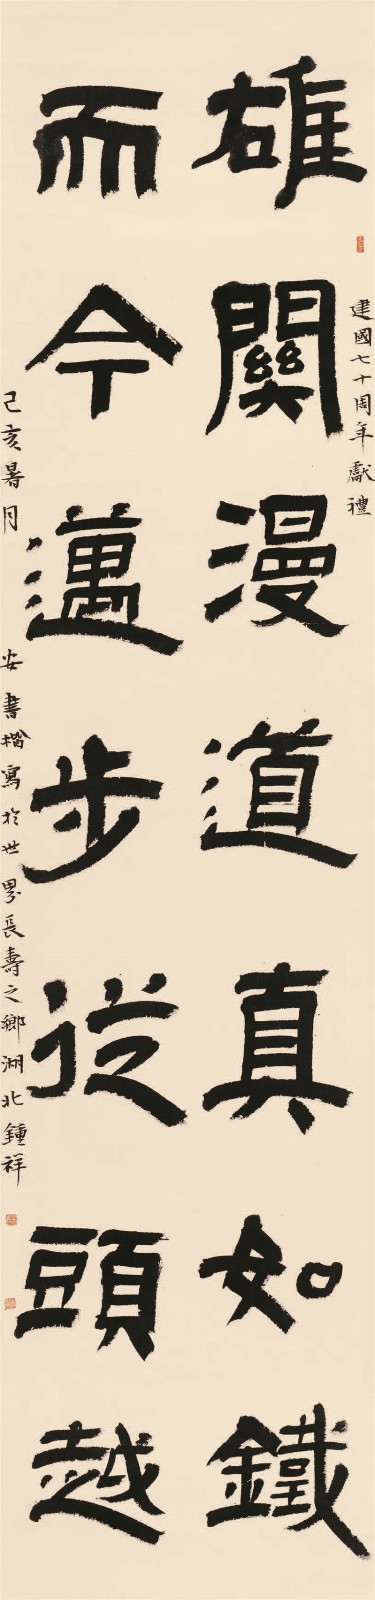 雄關漫道真如鐵
而今邁步從頭越
建國七十周年獻禮
己亥暑月
安書楷寫於世界長壽之鄉湖北鍾祥